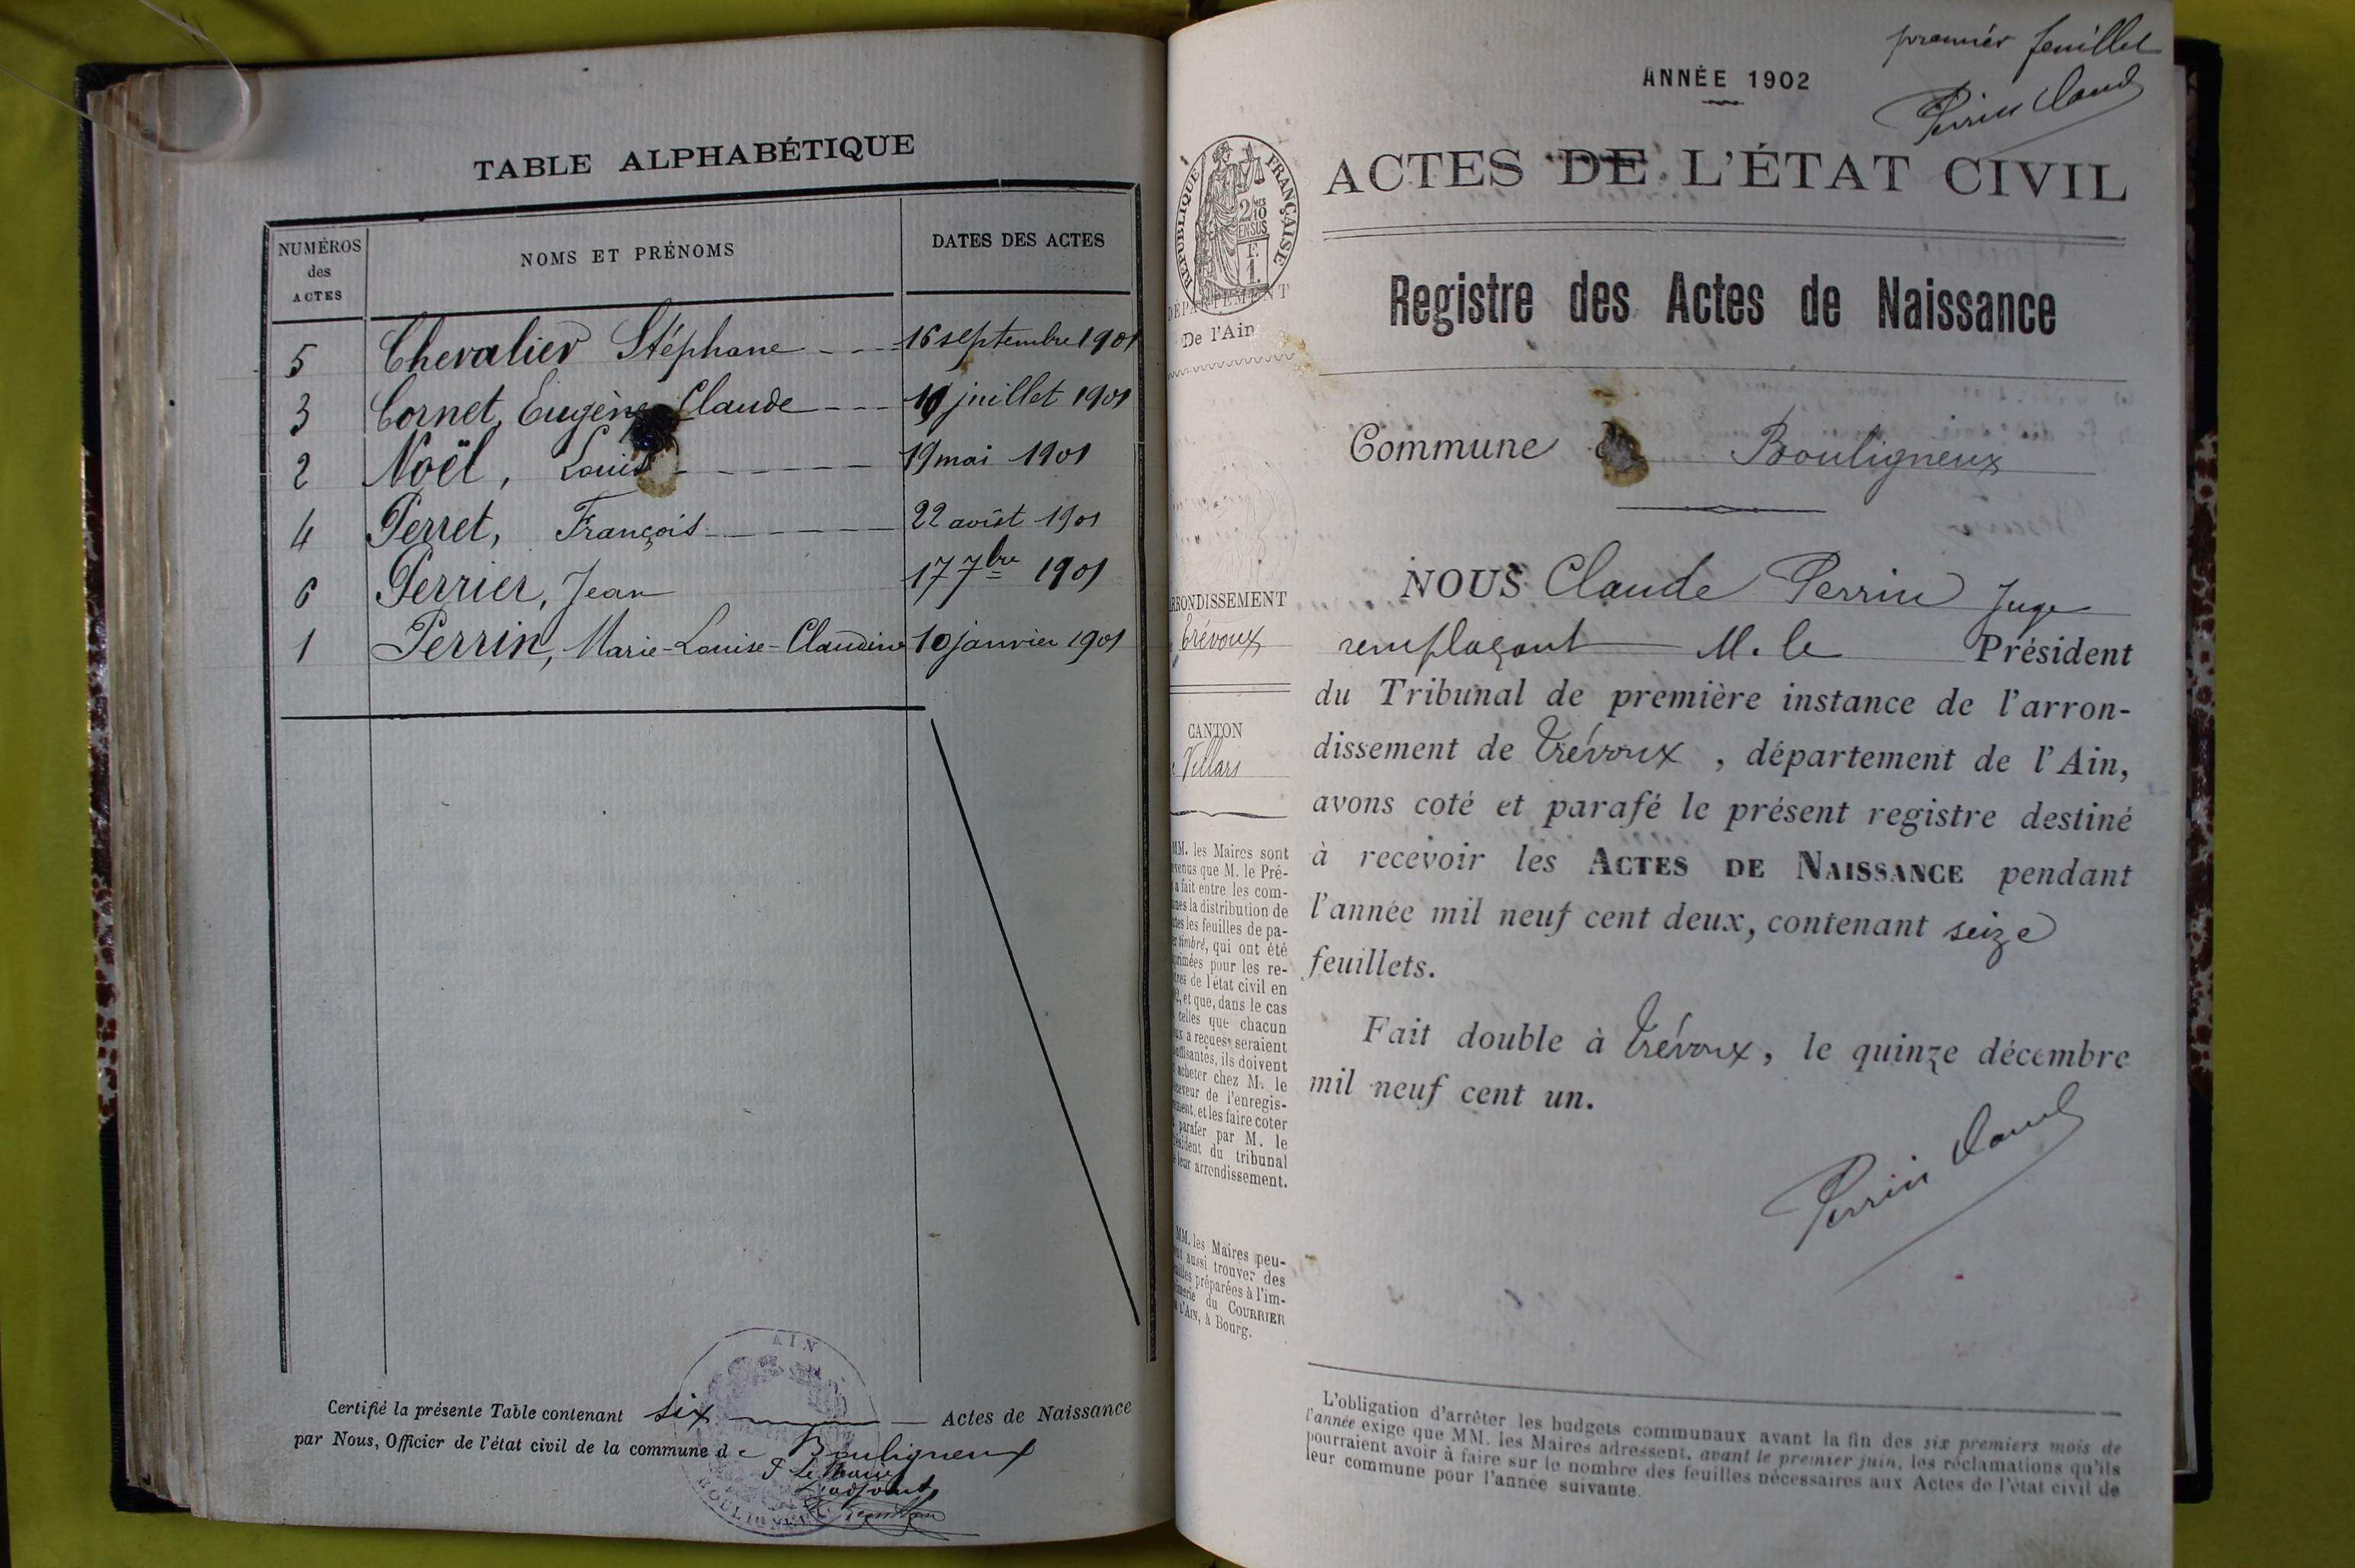 TABLE ALPHABÉTIQUE
NUMÉROS des ACTES
NOMS ET PRÉNOMS
DATES DES ACTES
5 Chevalier Stéphane 16 septembre 1901
3 Cornet, Eugène Claude juillet 1901
2 Noël, Louis 19 mai 1901
4 Perret, François 22 août 1901
6 Perrier, Jean 17 7bre 1901
1 Perrin, Marie-Louise-Claudine 10 janvier 1901
Certifié la présente Table contenant six Actes de Naissance
par Nous, Officier de l'état civil de la commune de Bouligneux
P. Le Maire
L'adjoint
AIN
BOULIGNEUX
premier feuillet
Perrin Claude
ANNÉE 1902
ACTES DE L'ÉTAT CIVIL
RÉPUBLIQUE FRANÇAISE
2/10 EN SUS
F. 1
DÉPARTEMENT
De l'Ain
Registre des Actes de Naissance
Commune Bouligneux
NOUS Claude Perrin Juge
remplaçant M. le Président
du Tribunal de première instance de l'arron-
dissement de Trévoux, département de l'Ain,
avons coté et parafé le présent registre destiné
à recevoir les ACTES DE NAISSANCE pendant
l'année mil neuf cent deux, contenant seize
feuillets.
Fait double à Trévoux, le quinze décembre
mil neuf cent un.
Perrin Claude
RRONDISSEMENT
Trévoux
CANTON
Villars
MM. les Maires sont
venus que M. le Pré-
a fait entre les com-
nes la distribution de
tes les feuilles de pa-
er timbré, qui ont été
primées pour les re-
tres de l'état civil en
2, et que, dans le cas
celles que chacun
ux a reçues seraient
uffisantes, ils doivent
acheter chez M. le
eceveur de l'enregis-
ment, et les faire coter
parafer par M. le
ésident du tribunal
leur arrondissement.
MM. les Maires peu-
nt aussi trouver des
uilles préparées à l'im-
merie du COURRIER
L'AIN, à Bourg.
L'obligation d'arrêter les budgets communaux avant la fin des six premiers mois de
l'année exige que MM. les Maires adressent, avant le premier juin, les réclamations qu'ils
pourraient avoir à faire sur le nombre des feuilles nécessaires aux Actes de l'état civil de
leur commune pour l'année suivante.